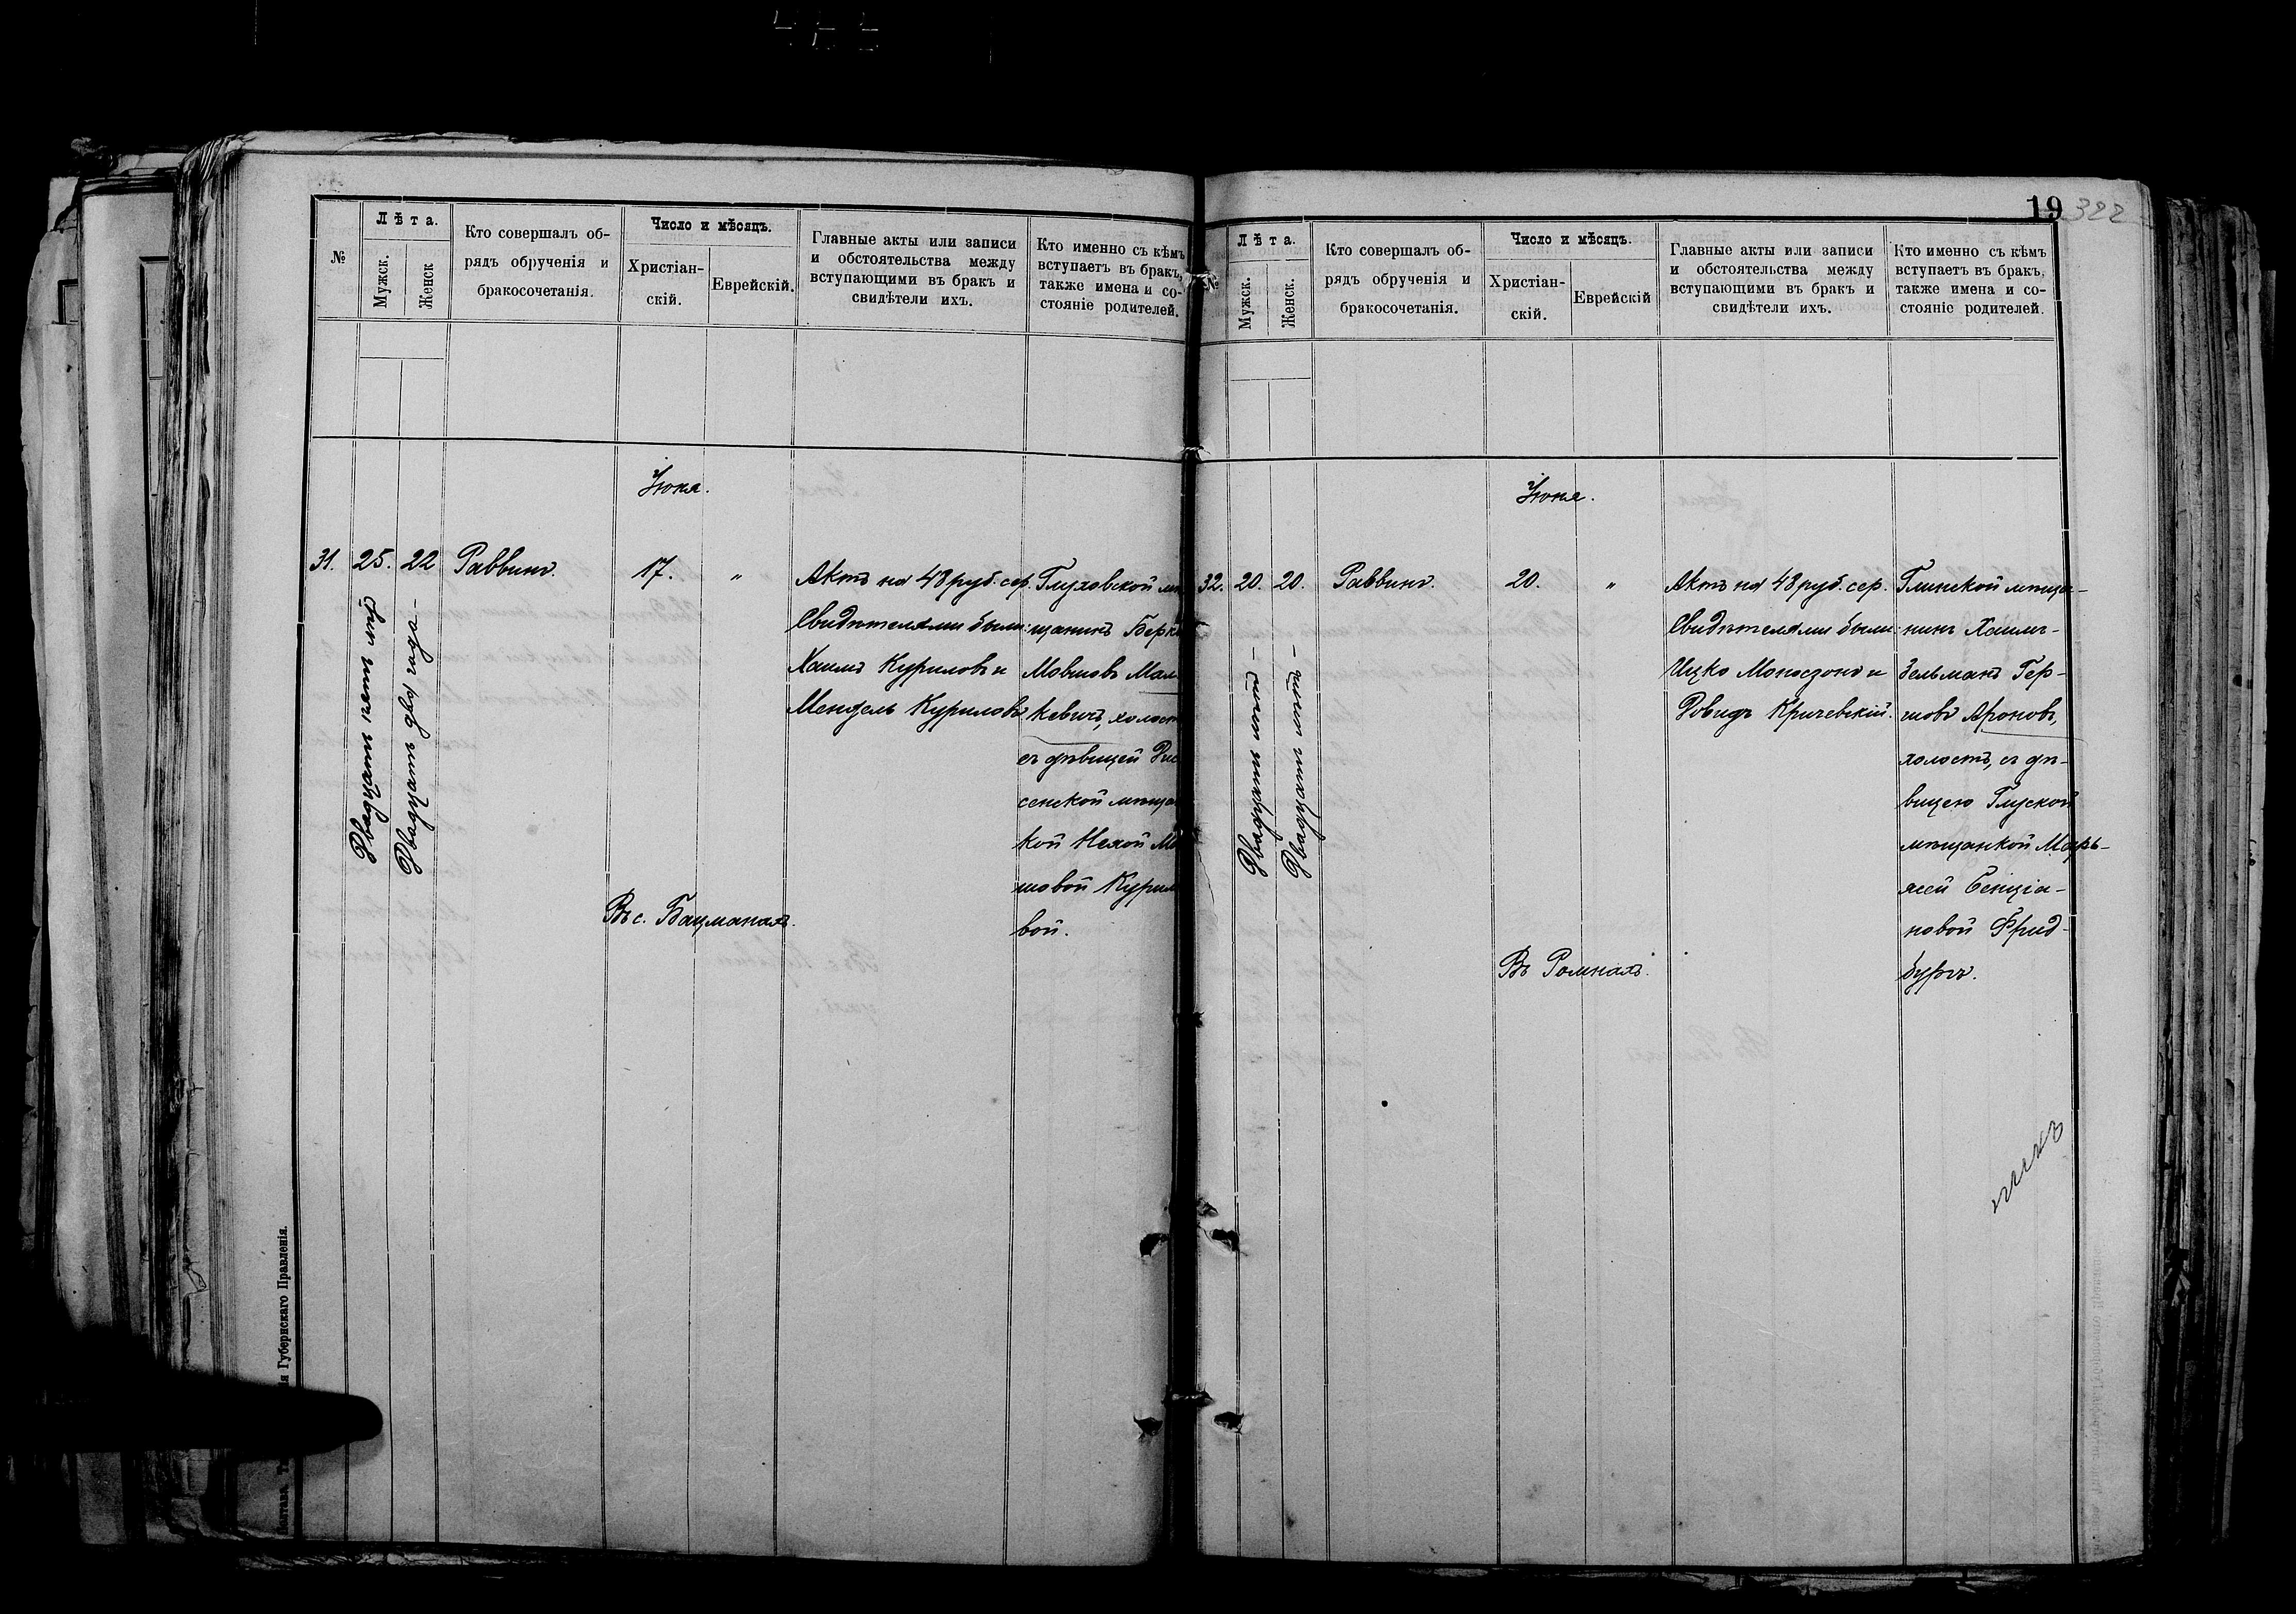 №
Лѣта.
Мужск.
Женск
Кто совершалъ об-
рядъ обрученія и
бракосочетанія.
Число и мѣсяцъ.
Христіан-
скій.
Еврейскій.
Главные акты или записи
и обстоятельства между
вступающими въ бракъ и
свидѣтели ихъ.
Кто именно съ кѣмъ
вступаетъ въ бракъ,
также имена и со-
стояніе родителей.
Іюня.
31.
25.
Двадцать пять лѣтъ
22
Двадцать два года
Раввинъ.
17.
"
Въ с. Бацманахъ.
Актъ на 48 руб. сер.
Свидѣтелями были:
Хаимъ Куриловъ и
Мендель Куриловъ
Глуховской мѣ
щанинъ Берка
Мовшовъ Мал
кевичъ, холостъ
съ дѣвицей Рис
сенской мѣщан
кой Нехой Мо
шовой Курил
вой.
Губернскаго Правленія.
19
322
№
Лѣта.
Мужск.
Женск.
Кто совершалъ об-
рядъ обрученія и
бракосочетанія.
Число и мѣсяцъ.
Христіан-
скій.
Еврейскій
Главные акты или записи
и обстоятельства между
вступающими въ бракъ и
свидѣтели ихъ.
Кто именно съ кѣмъ
вступаетъ въ бракъ,
также имена и со-
стояніе родителей.
Іюня.
32.
20.
Двадцать лѣтъ –
20.
Двадцать лѣтъ –
Раввинъ.
20.
"
Въ Ромнахъ.
Актъ на 48 руб. сер.
Свидѣтелями были:
Ицко Моносзонъ и
Довидъ Кричевскій.
Глинской мѣща-
нинъ Хаимъ-
Зельманъ Гер-
шовъ Ароновъ,
холостъ, съ дѣ-
вицею Глуской
мѣщанкой Марь-
ясей Бенціа-
новой Фрид-
бургъ.